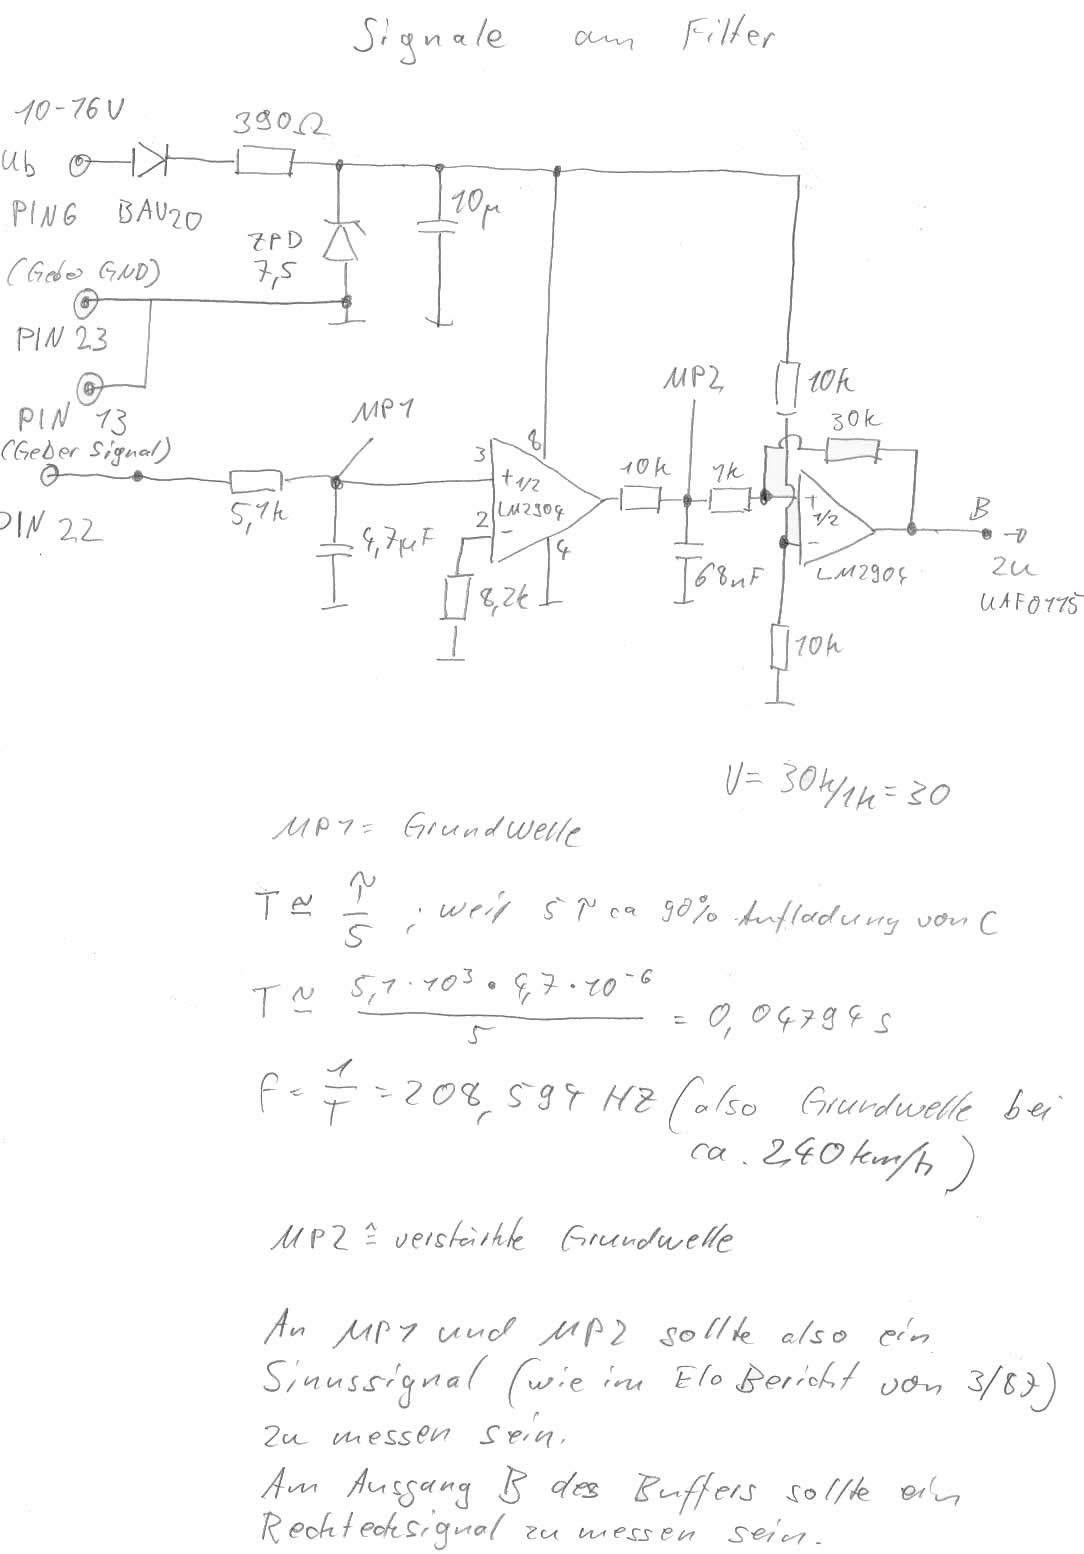 Signale am Filter
10-16V
390Ω
Ub
PIN6 BAV20
10µ
ZPD
7,5
(Geber GND)
PIN 23
PIN 13
(Geber Signal)
PIN 22
MP1
5,1k
4,7µF
3
2
8
4
+ 1/2
LM2904
-
8,2k
MP2
10k
1k
68nF
10k
30k
+
1/2
-
LM2904
10k
B
zu
UAF0115
V= 30k/1k = 30
MP1 = Grundwelle
T ≅ τ/5 ; weil 5 τ ca 90% Aufladung von C
T ≅ 5,1·10³ • 4,7·10⁻⁶ / 5 = 0,04794 s
f = 1/T = 208,594 HZ (also Grundwelle bei
ca. 240 km/h)
MP2 ≙ verstärkte Grundwelle
An MP1 und MP2 sollte also ein
Sinussignal (wie im Elo Bericht von 3/87)
zu messen sein.
Am Ausgang B des Buffers sollte ein
Rechtecksignal zu messen sein.